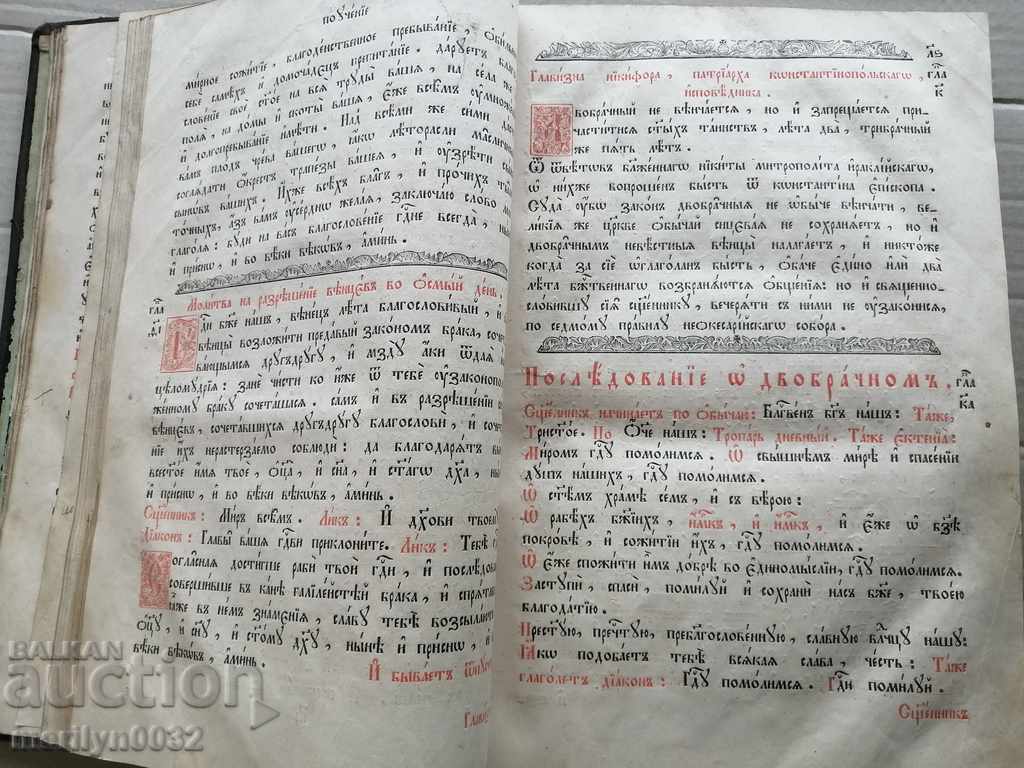 поученїе
мирное сожитїе, благоденственное пребыванїе,
себе самѣхъ и домочадецъ препитанїе. даруетъ
словенїе свое с҃тое на вся труды вашя, на села
поля, на домы и скоты вашя, еже всѣмъ
и долгопребыванїе имѣти. Над всѣми же сими
вам плодъ чрева вашегѡ, ꙗкѡ лѣторасли масличны
соглядати окрест трапезы вашея, и ѹзрѣти сыны
сынѡвъ вашихъ. Ихже всѣхъ благъ, и прочихъ
точныхъ, азъ вамъ ѹсердно желая, заключаю слово
глаголя: буди на васъ благословенїе гд҃не всегда,
и присно, и во вѣки вѣкѡвъ, аминь.
Молитва на разрѣшенїе вѣнцевъ во осмый день.
Гд҃и бж҃е нашъ, вѣнецъ лѣта благословивый, и
вѣнцы возложити предавый закономъ брака,
вающымся другъдругу, и мзду аки ѿдая
цѣломудрїя: зане чисти ко иже ѿ тебе ѹзаконопо
женному браку сочеташася. самъ и въ разрѣшенїи
вѣнцевъ, сочетавшихся другъдругу благослови, и
нїе ихъ нерастерзаемо соблюди: да благодарятъ
всестое имя твое, оц҃а, и сн҃а, и ст҃агѡ дх҃а,
и присно, и во вѣки вѣкѡвъ, аминь.
Сщ҃енникъ: Миръ всѣмъ. Ликъ: И дх҃ови твоему
Дїаконъ: Главы вашя гд҃ви приклоните. Ликъ: Тебѣ
Согласная достигше раби твои гд҃и, и послѣдова
совершивше въ канѣ галїлейстѣй брака, и спрята
ꙗже въ нем знаменїя, славу тебѣ возсылаютъ
оц҃у, и сн҃у, и ст҃ому дх҃у, нынѣ и присно, и
вѣки вѣкѡвъ, аминь.
И бываетъ ѿпустъ
Главиз
Главизна никифора, патрїарха константїнопольскагѡ,
исповѣдника.
гл҃а
к҃
Двобрачный не вѣнчается, но и запрещается при-
частитися ст҃ыхъ таинствъ, лѣта два, трибрачный
же пять лѣтъ.
Ѿ ѿвѣтѡвъ блаженнагѡ никиты митрополїта ираклїйскагѡ,
ѡ нихже вопрошенъ бысть ѿ константина епископа.
Суда ѹбо законъ двобрачныя не обыче вѣнчати, ве-
ликїя же цр҃кве обычай сицевая не сохраняетъ, но и
двобрачнымъ невѣстныя вѣнцы налагаетъ, и никтоже
когда за сїе ѡглаголанъ бысть, обаче едино или два
лѣта бж҃ственнагѡ возбраняются общенїя: но и священно-
словившу сїя сщ҃еннику, вечеряти съ ними не ѹзаконися,
по седмому правилу неокесарїйскагѡ собора.
Послѣдованїе ѡ двобрачномъ.
гл҃а
к҃а
Сщ҃енникъ начинаетъ по обычаю: Благ҃венъ бг҃ъ нашъ: Таже,
Трист҃ое. По Оч҃е нашъ: Тропарь дневный. Таже ектенїа:
Миромъ гд҃у помолимся. Ѡ свышнемъ мирѣ и спасенїи
душъ нашихъ, гд҃у помолимся.
Ѡ ст҃ѣмъ храмѣ семъ, и съ вѣрою:
Ѡ рабѣхъ бж҃їихъ, и҃мкъ, и и҃мкъ, и еже ѡ бз҃ѣ
покровѣ, и сожитїи ихъ, гд҃у помолимся.
Ѡ еже спожити им добрѣ во единомыслїи, гд҃у помолимся.
Заступи, спаси, помилуй и сохрани насъ бж҃е, твоею
благодатїю.
Прест҃ую, преч҃тую, преблагословенную, славную влд҃чцу нашу:
Ꙗкѡ подобаетъ тебѣ всякая слава, честь: Таже
глаголетъ дїаконъ: Гд҃у помолимся. Гд҃и помилуй.
Сщ҃енникъ
BALKAN
auction
merilyn0032